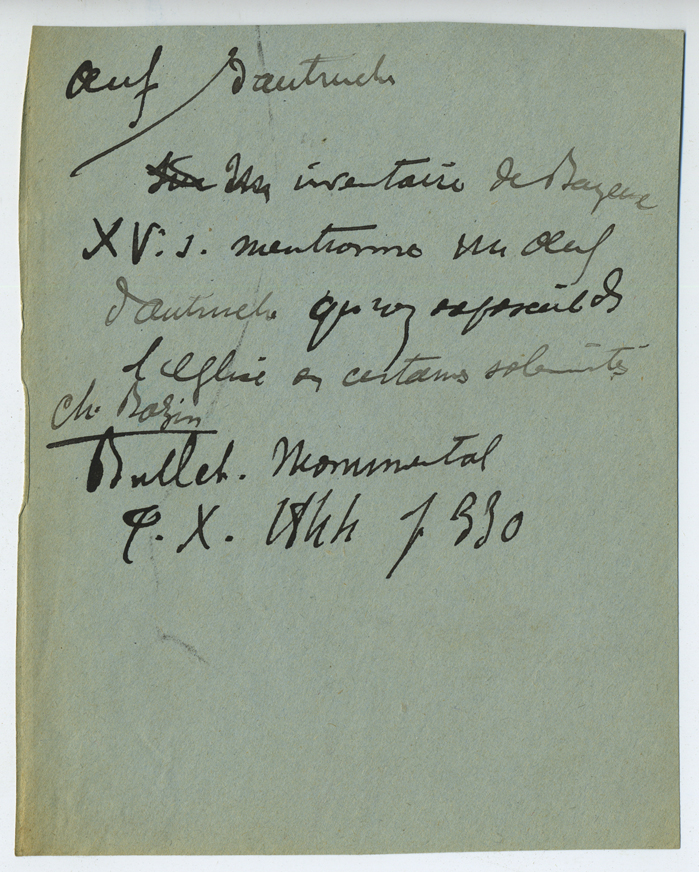 Œuf d'autruche
Un inventaire de Bayeux
XVe. s. mentionne un œuf
d'autruche qu'on exposait ds
l'église en certaines solennités
Ch. Bazin
Bullet. Monumental
T. X. 1844 p 330